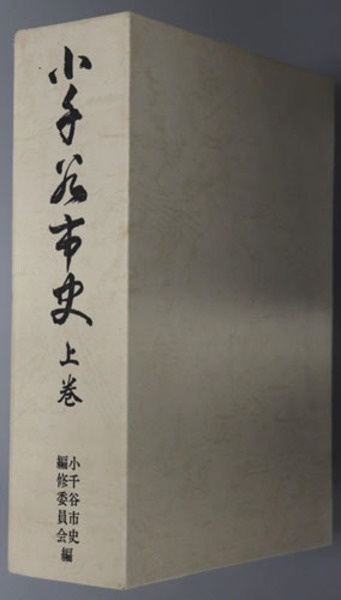 小千谷市史 上巻
小千谷市史
編修委員会編